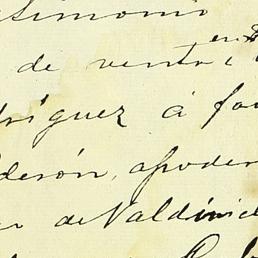 stimonio
de venta
en
dríguez á fa
derón, apoder
de Valdivie